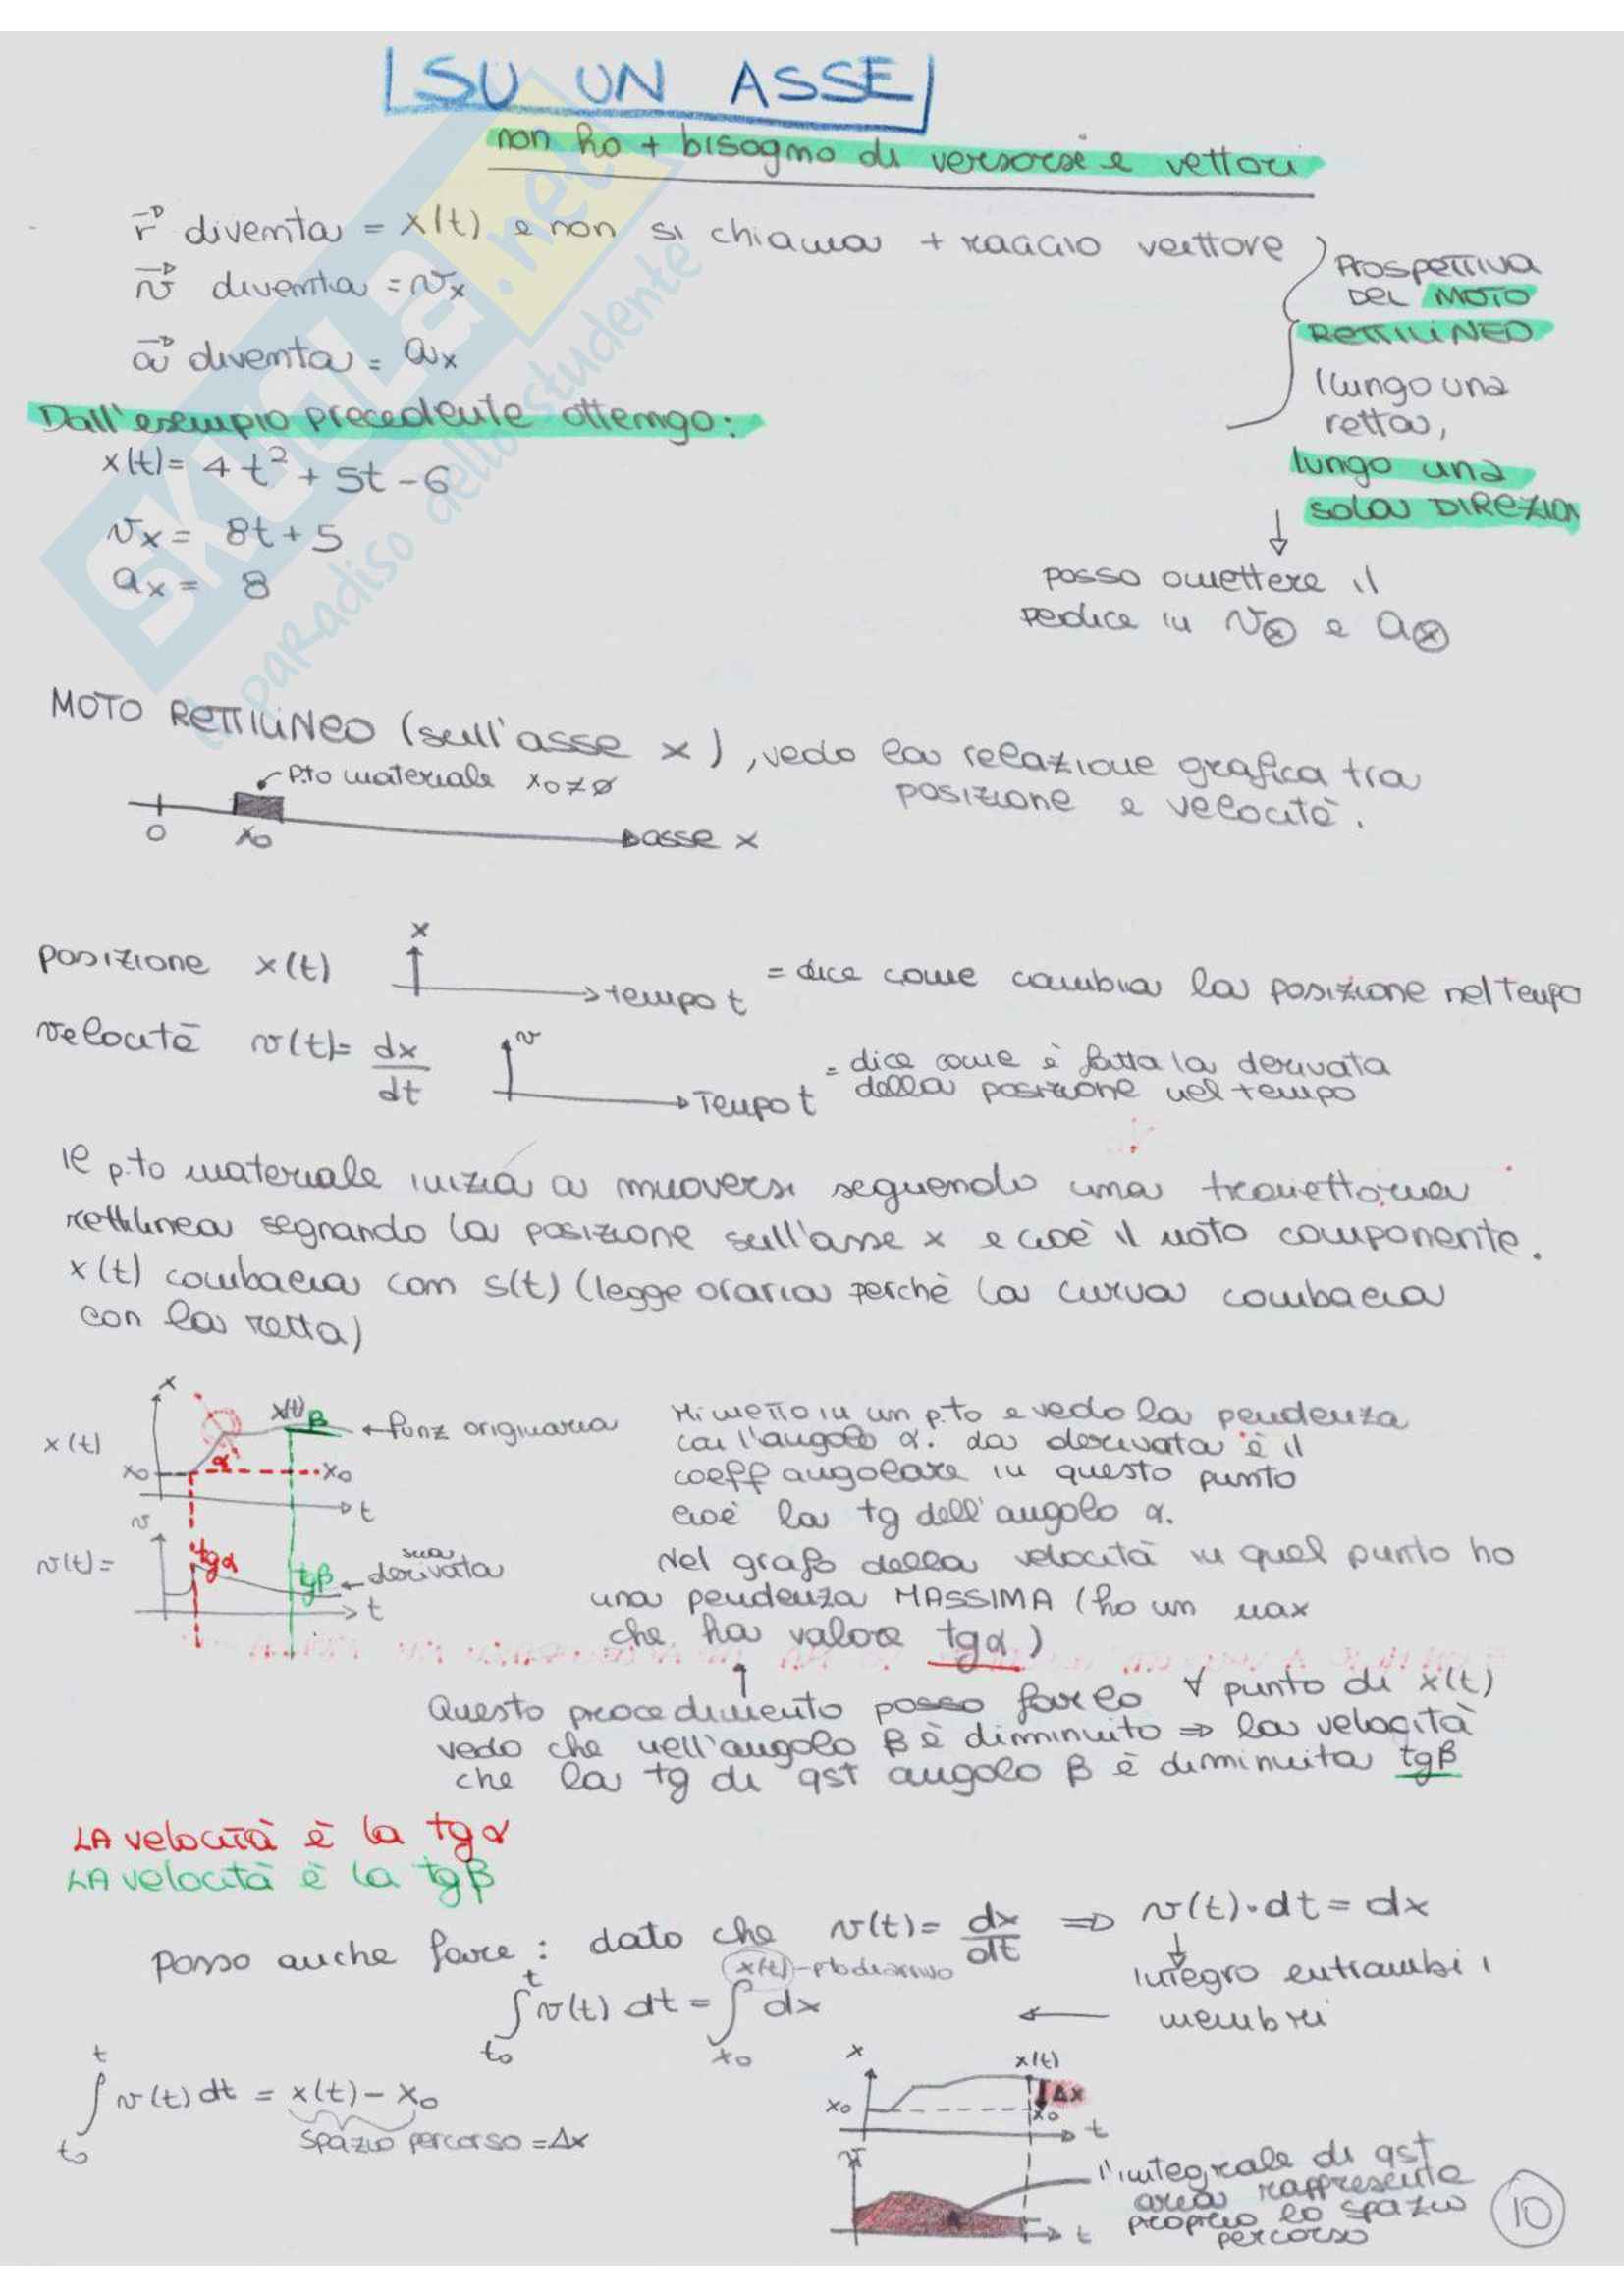 SU UN ASSE
non ho + bisogno di versori e vettori
r diventa = x(t) e non si chiama + raggio vettore
v diventa = vx
a diventa = ax
Prospettiva
DEL MOTO
RETTILINEO
(lungo una
retta,
lungo una
sola DIREZION
posso omettere il
pedice in v⊗ e a⊗
Dall'esempio precedente ottengo:
x(t) = 4t² + 5t - 6
vx = 8t + 5
ax = 8
SKUOLA.net
il paradiso dello studente
MOTO RETTILINEO (sull'asse x), vedo la relazione grafica tra
posizione e velocità.
p.to materiale x0≠ø
0 x0 asse x
posizione x(t) x tempo t = dice come cambia la posizione nel tempo
velocità v(t) = dx/dt v Tempo t = dice come è fatta la derivata
della posizione nel tempo
Il p.to materiale inizia a muoversi seguendo una traiettoria
rettilinea segnando la posizione sull'asse x e cioè il moto componente.
x(t) combacia con s(t) (legge oraria perchè la curva combacia
con la retta)
x(t) x x(t) β ← funz originaria
x0 α x0
t
v(t) = v tgα tgβ ← sua derivata
t
Mi metto in un p.to e vedo la pendenza
con l'angolo α. La derivata è il
coeff angolare in questo punto
cioè la tg dell'angolo α.
Nel grafo della velocità in quel punto ho
una pendenza MASSIMA (ho un max
che ha valore tgα)
Questo procedimento posso farlo ∀ punto di x(t)
vedo che nell'angolo β è diminuito ⇒ la velocità
che la tg di qst angolo β è diminuita tgβ
LA velocità è la tgα
LA velocità è la tgβ
Posso anche fare: dato che v(t) = dx/dt ⇒ v(t)·dt = dx
Integro entrambi i
membri
x(t) - p.to di arrivo
∫ t0 t v(t) dt = ∫ x0 dx
∫ t0 t v(t) dt = x(t) - x0
spazio percorso = Δx
x x(t)
x0 Δx
x0 t
v t
l'integrale di qst
area rappresenta
proprio lo spazio
percorso
10